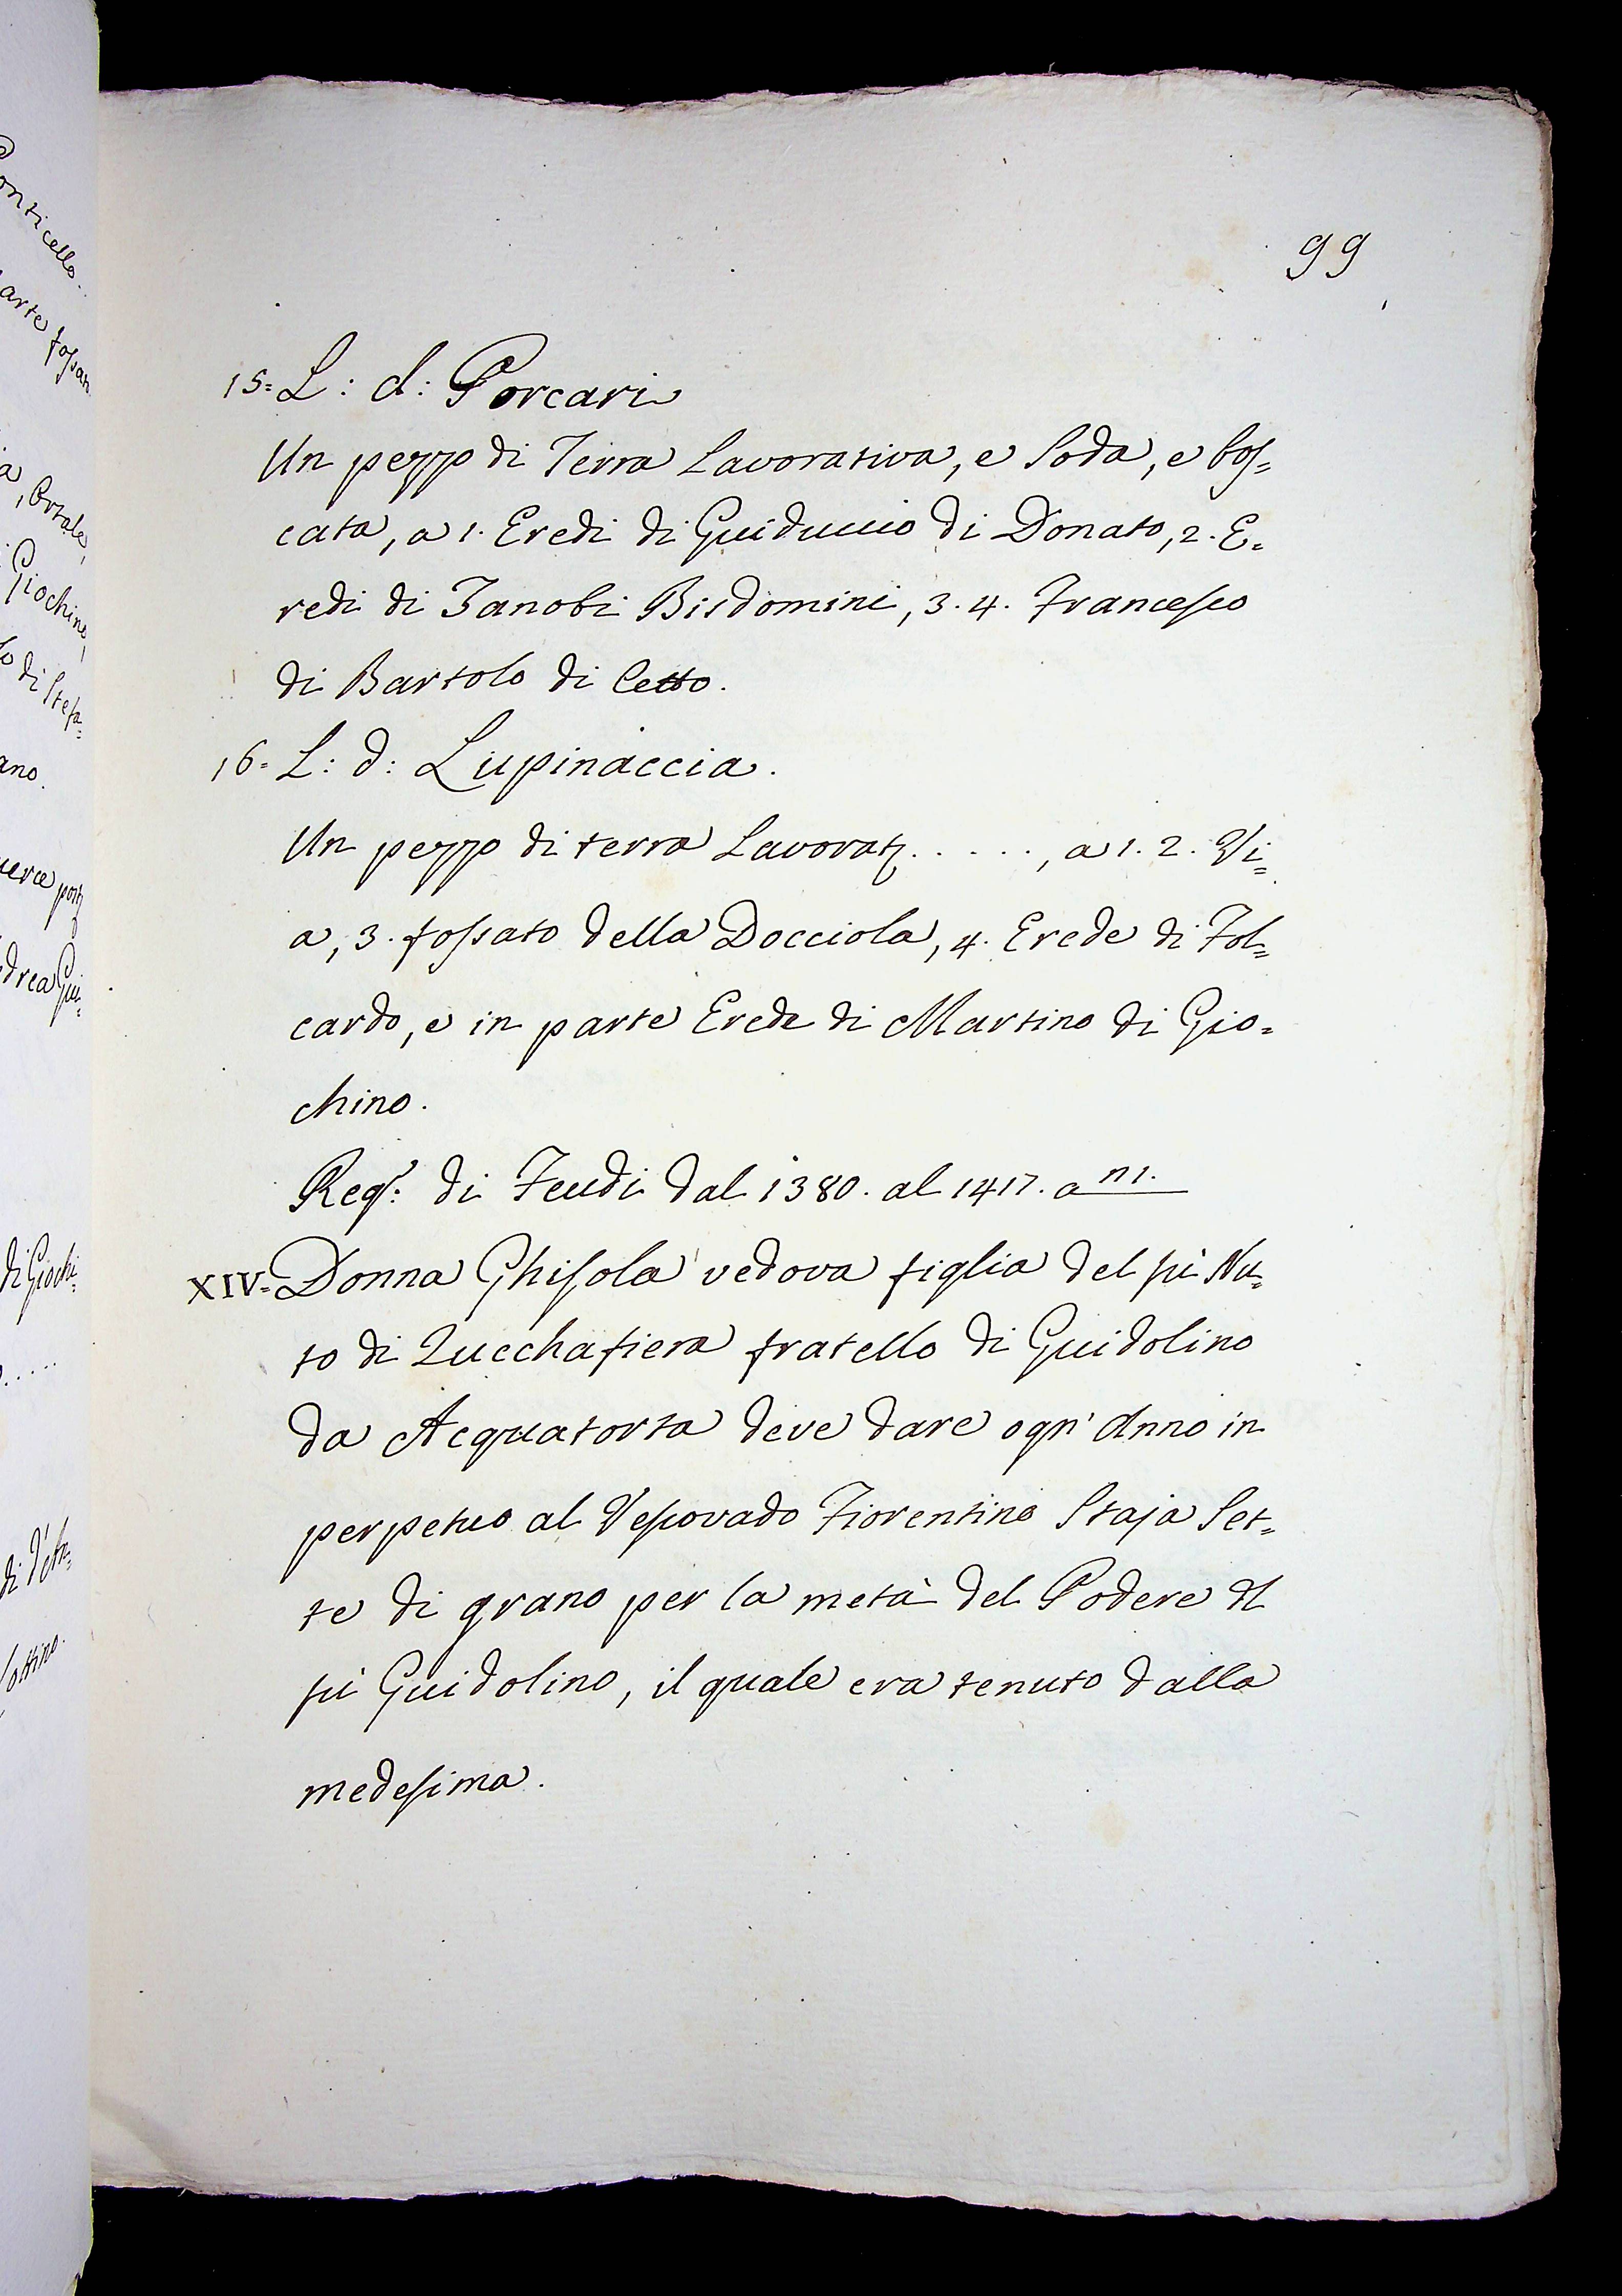 99
15= L: d: Porcari
Un pezzo di Terra Lavorativa, e Soda, e bos=
cata, a 1. Eredi di Guiduccio di Donato, 2. E=
redi di Zanobi Bisdomini, 3. 4. Francesco
di Bartolo di Cetto.
16= L: d: Lupinaccia.
Un pezzo di terra Lavorat. . . . . ., a 1. 2. Vi=
a, 3. fossato della Docciola, 4. Erede di Fol=
cardo, e in parte Erede di Martino di Gio=
chino.
Reg: di Feudi dal 1380. al 1417. a n1.
XIV= Donna Ghisola vedova figlia del fù Nu=
to di Zucchafiera fratello di Guidolino
da Acquatorta deve dare ogn' Anno in
perpetuo al Vescovado Fiorentino Staja Set=
te di grano per la metà del Podere dl
fù Guidolino, il quale era tenuto dalla
medesima.
onticello..
arte fossa
a, Ortale,
Giochino,
o di Stefa=
ano.
drea Gui=
di Giochi=
.....